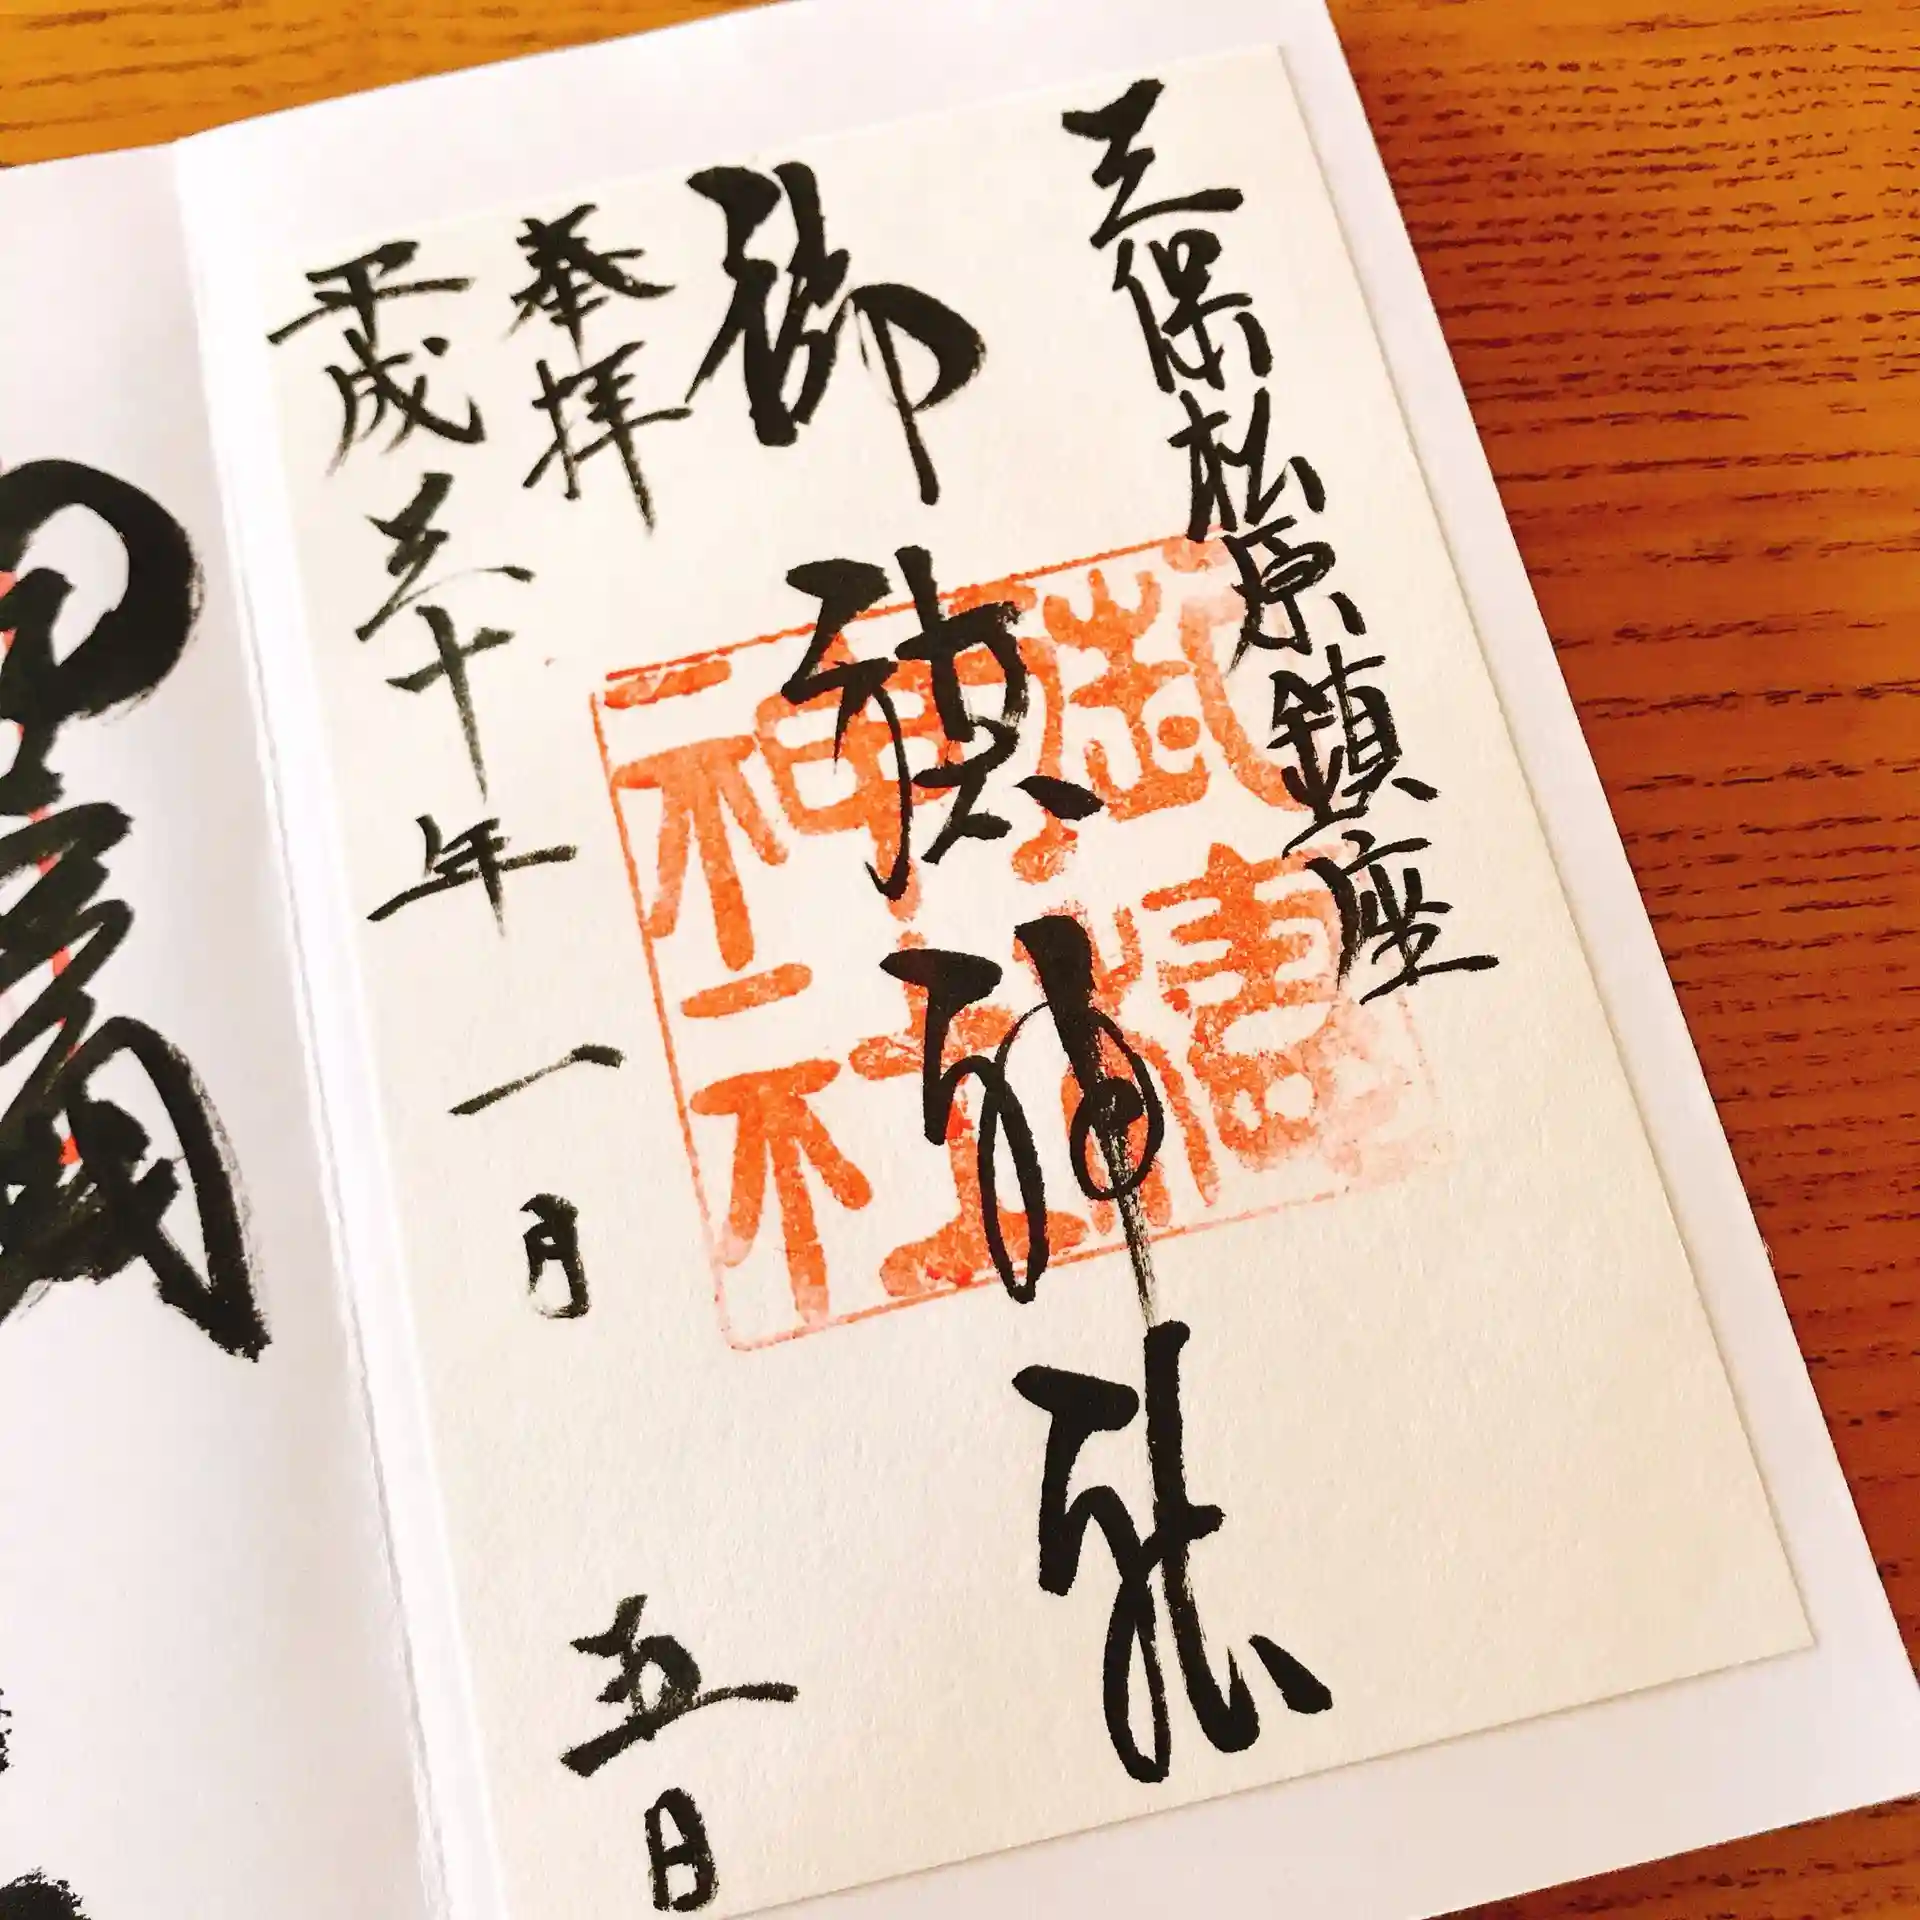 三保松原鎮座
御穂神社
奉拝
平成三十年一月五日
神社